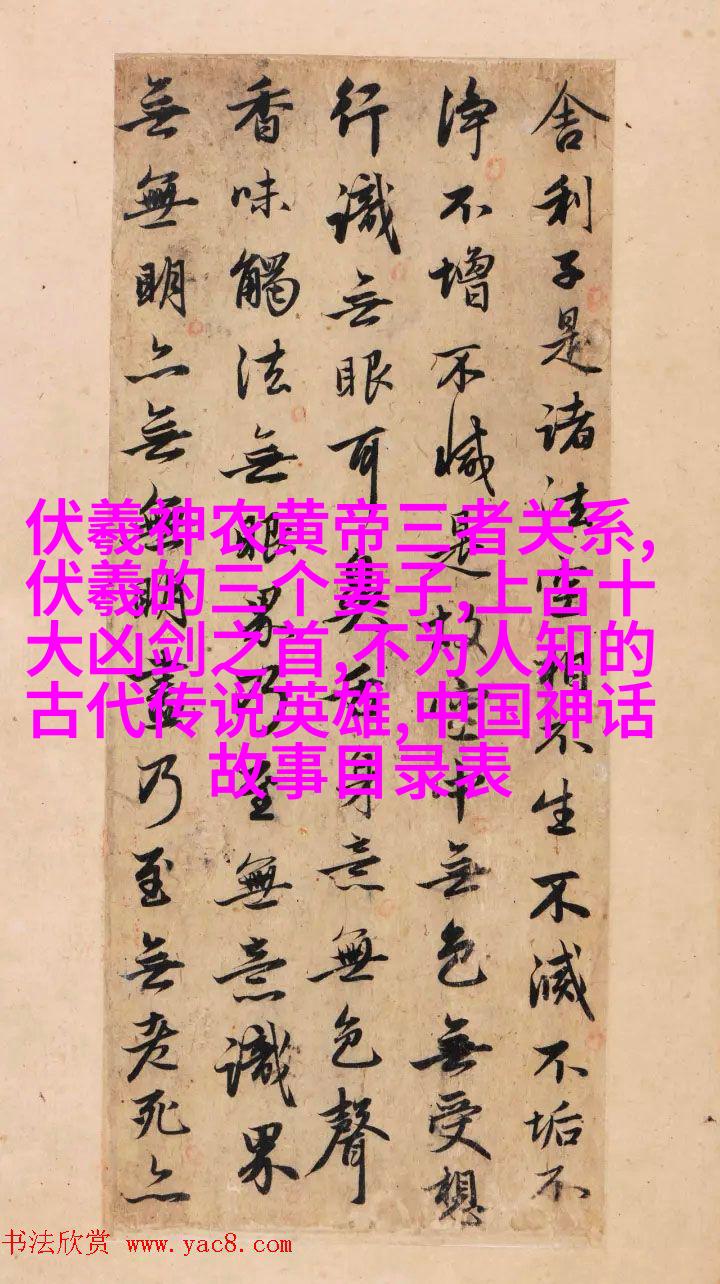 舍利子是諸法空相不生不滅不垢不
淨不增不減是故空中無色無受想
行識無眼耳鼻舌身意無色聲
香味觸法無眼界乃至無意識界
無無明亦無無明盡乃至無老死亦
伏羲神农黄帝三者关系,
伏羲的三个妻子,上古十
大凶剑之首,不为人知的
古代传说英雄,中国神话
故事目录表
书法欣赏 www.yac8.com